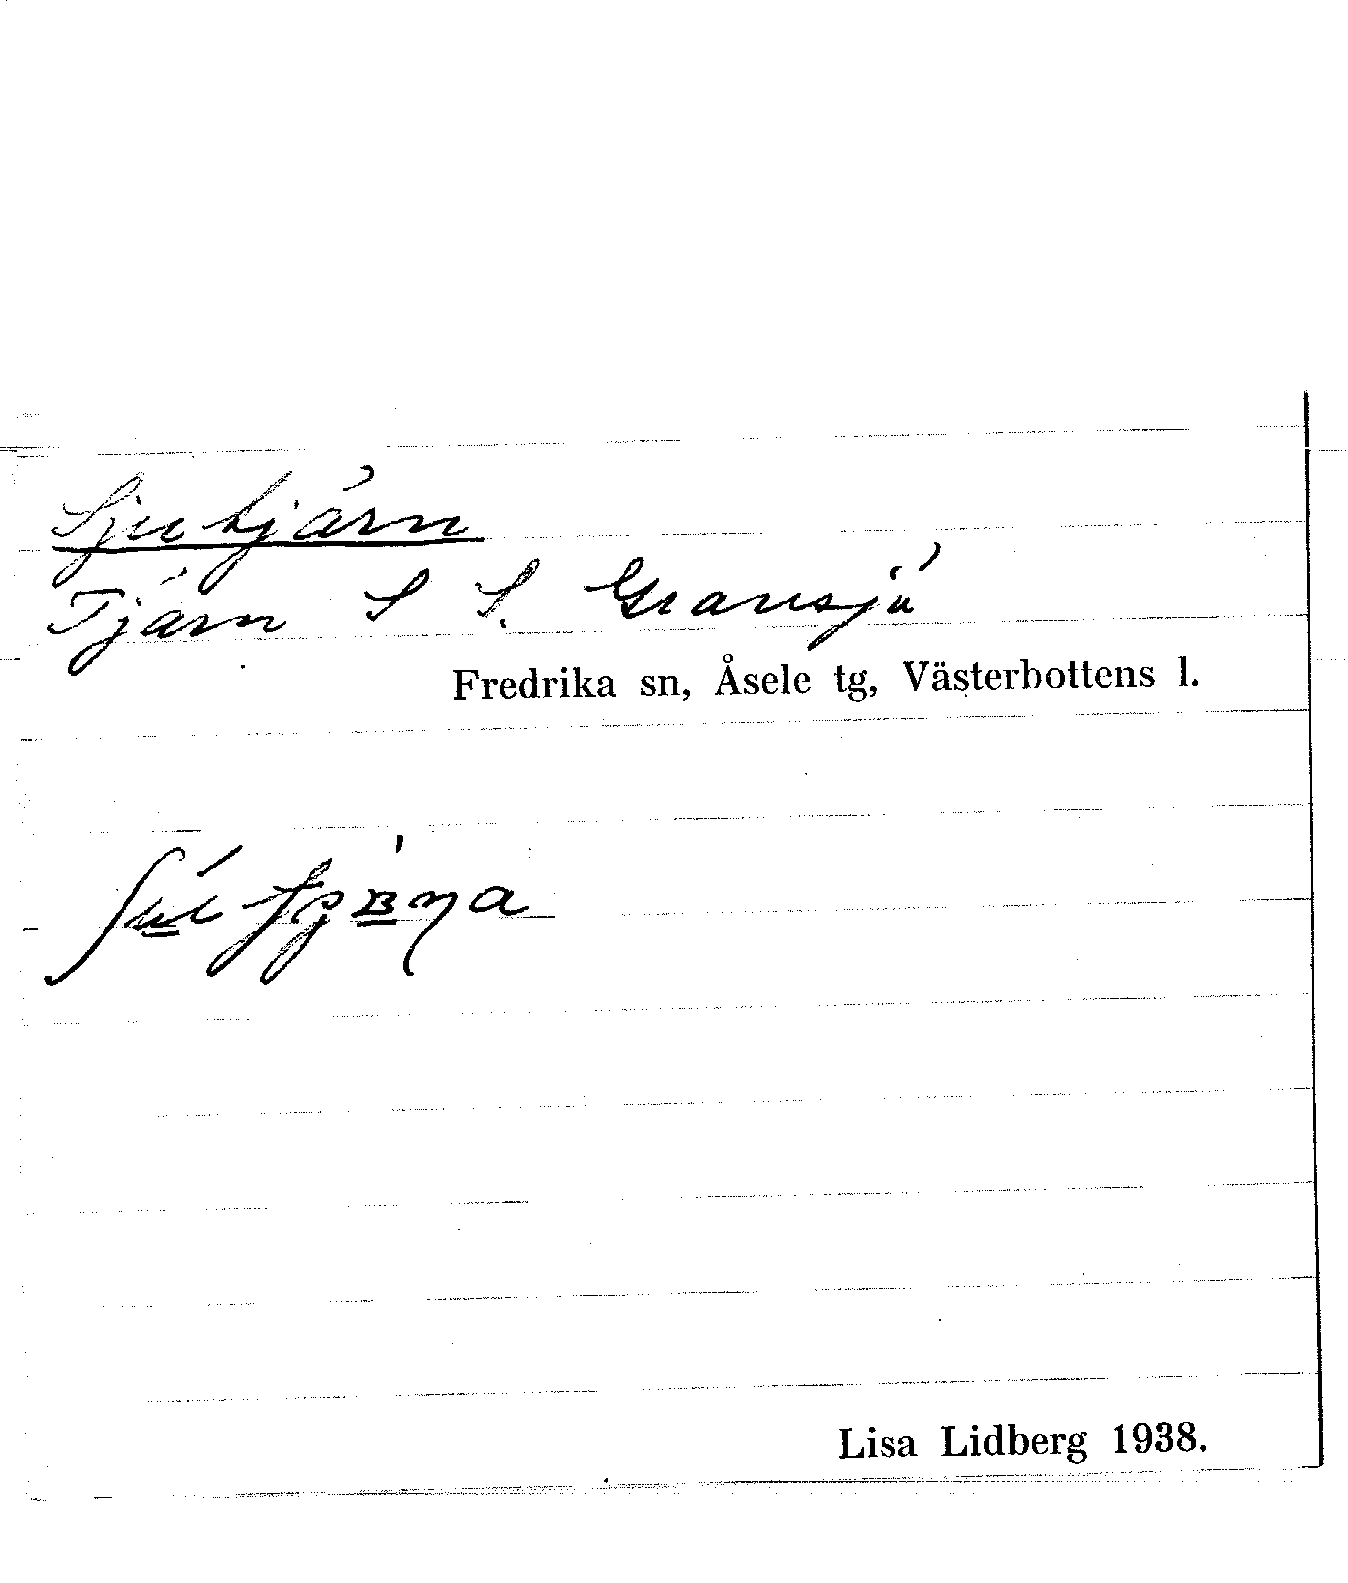 Sjutjärn
Tjärn S S. Gransjö
Fredrika sn, Åsele tg, Västerbottens l.
Lisa Lidberg 1938.